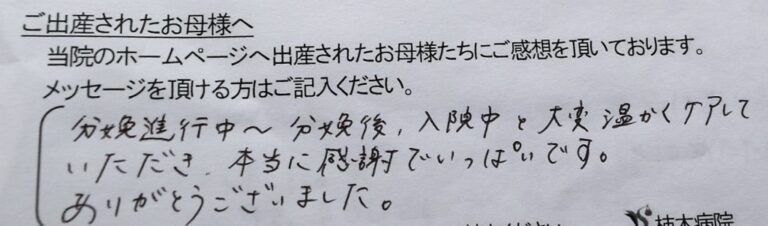 ご出産されたお母様へ
当院のホームページへ出産されたお母様たちにご感想を頂いております。
メッセージを頂ける方はご記入ください。
分娩進行中〜分娩後、入院中と大変温かくケアして
いただき、本当に感謝でいっぱいです。
ありがとうございました。
柿本病院